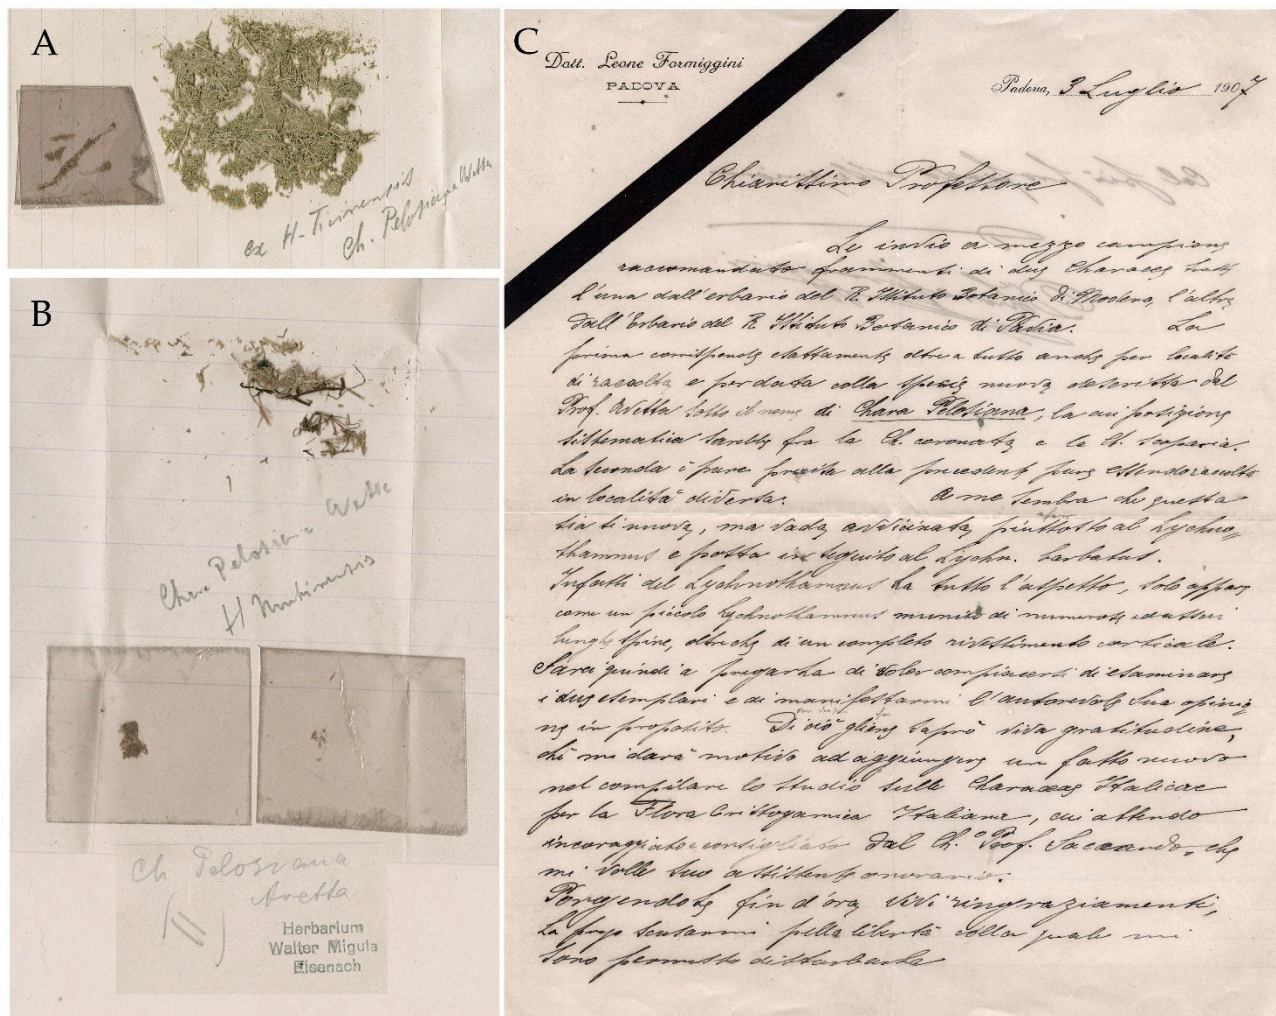 A
ex H. Ticinensis
Ch. Pelosiana Avetta
B
Chara Pelosiana Avetta
H Mutinensis
Ch Pelosiana
Avetta
(11)
Herbarium
Walter Migula
Eisenach
C
Dott. Leone Formiggini
PADOVA
Padova, 3 Luglio 1907
Chiarissimo Professore
Le invio a mezzo campione
raccomandato frammenti di due Characee
l'una dall'erbario del R. Istituto Botanico di Modena, l'altra
dall'Erbario del R. Istituto Botanico di Pavia. La
prima corrisponde esattamente oltre a tutto anche per località
di raccolta e per data colla specie nuova descritta dal
Prof. Avetta sotto il nome di Chara Pelosiana, la cui posizione
sistematica sarebbe fra la Ch. coronata e la Ch. scoparia.
La seconda è pure alla precedente pure essendo raccolta
in località diversa. A me sembra che questa
sia sì nuova, ma vada avvicinata piuttosto al Lychno-
thamnus e posta in seguito al Lychn. barbatus.
Infatti del Lychnothamnus ha tutto l'aspetto, solo appare
come un piccolo Lychnothamnus munito di numerose
lunghe spine, oltreché di un completo rivestimento corticale.
Sarei quindi a pregarla di voler compiacersi di esaminare
i due esemplari e di manifestarmi l'autorevole Sua opinio-
ne in proposito. Di ciò gliene saprò viva gratitudine,
chè mi darà motivo ad aggiungere un fatto nuovo
nel compilare lo studio sulle Characee Italicae
per la Flora Crittogamica Italiana, cui attendo
incoraggiato e consigliato dal Ch.o Prof. Saccardo, che
mi volle suo assistente onorario.
Porgendole fin d'ora vivi ringraziamenti,
La prego scusarmi pella libertà colla quale mi
sono permesso disturbarla